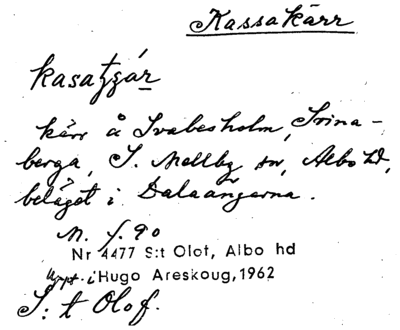 Kassakärr
kasatʒár
kärr å Svabesholm, Svina-
berga, S. Mellby sn, Albo hd,
beläget i Dalaängarna.
M. f. 90
Nr 4477 S:t Olof, Albo hd
Uppt. i Hugo Areskoug, 1962
S:t Olof.